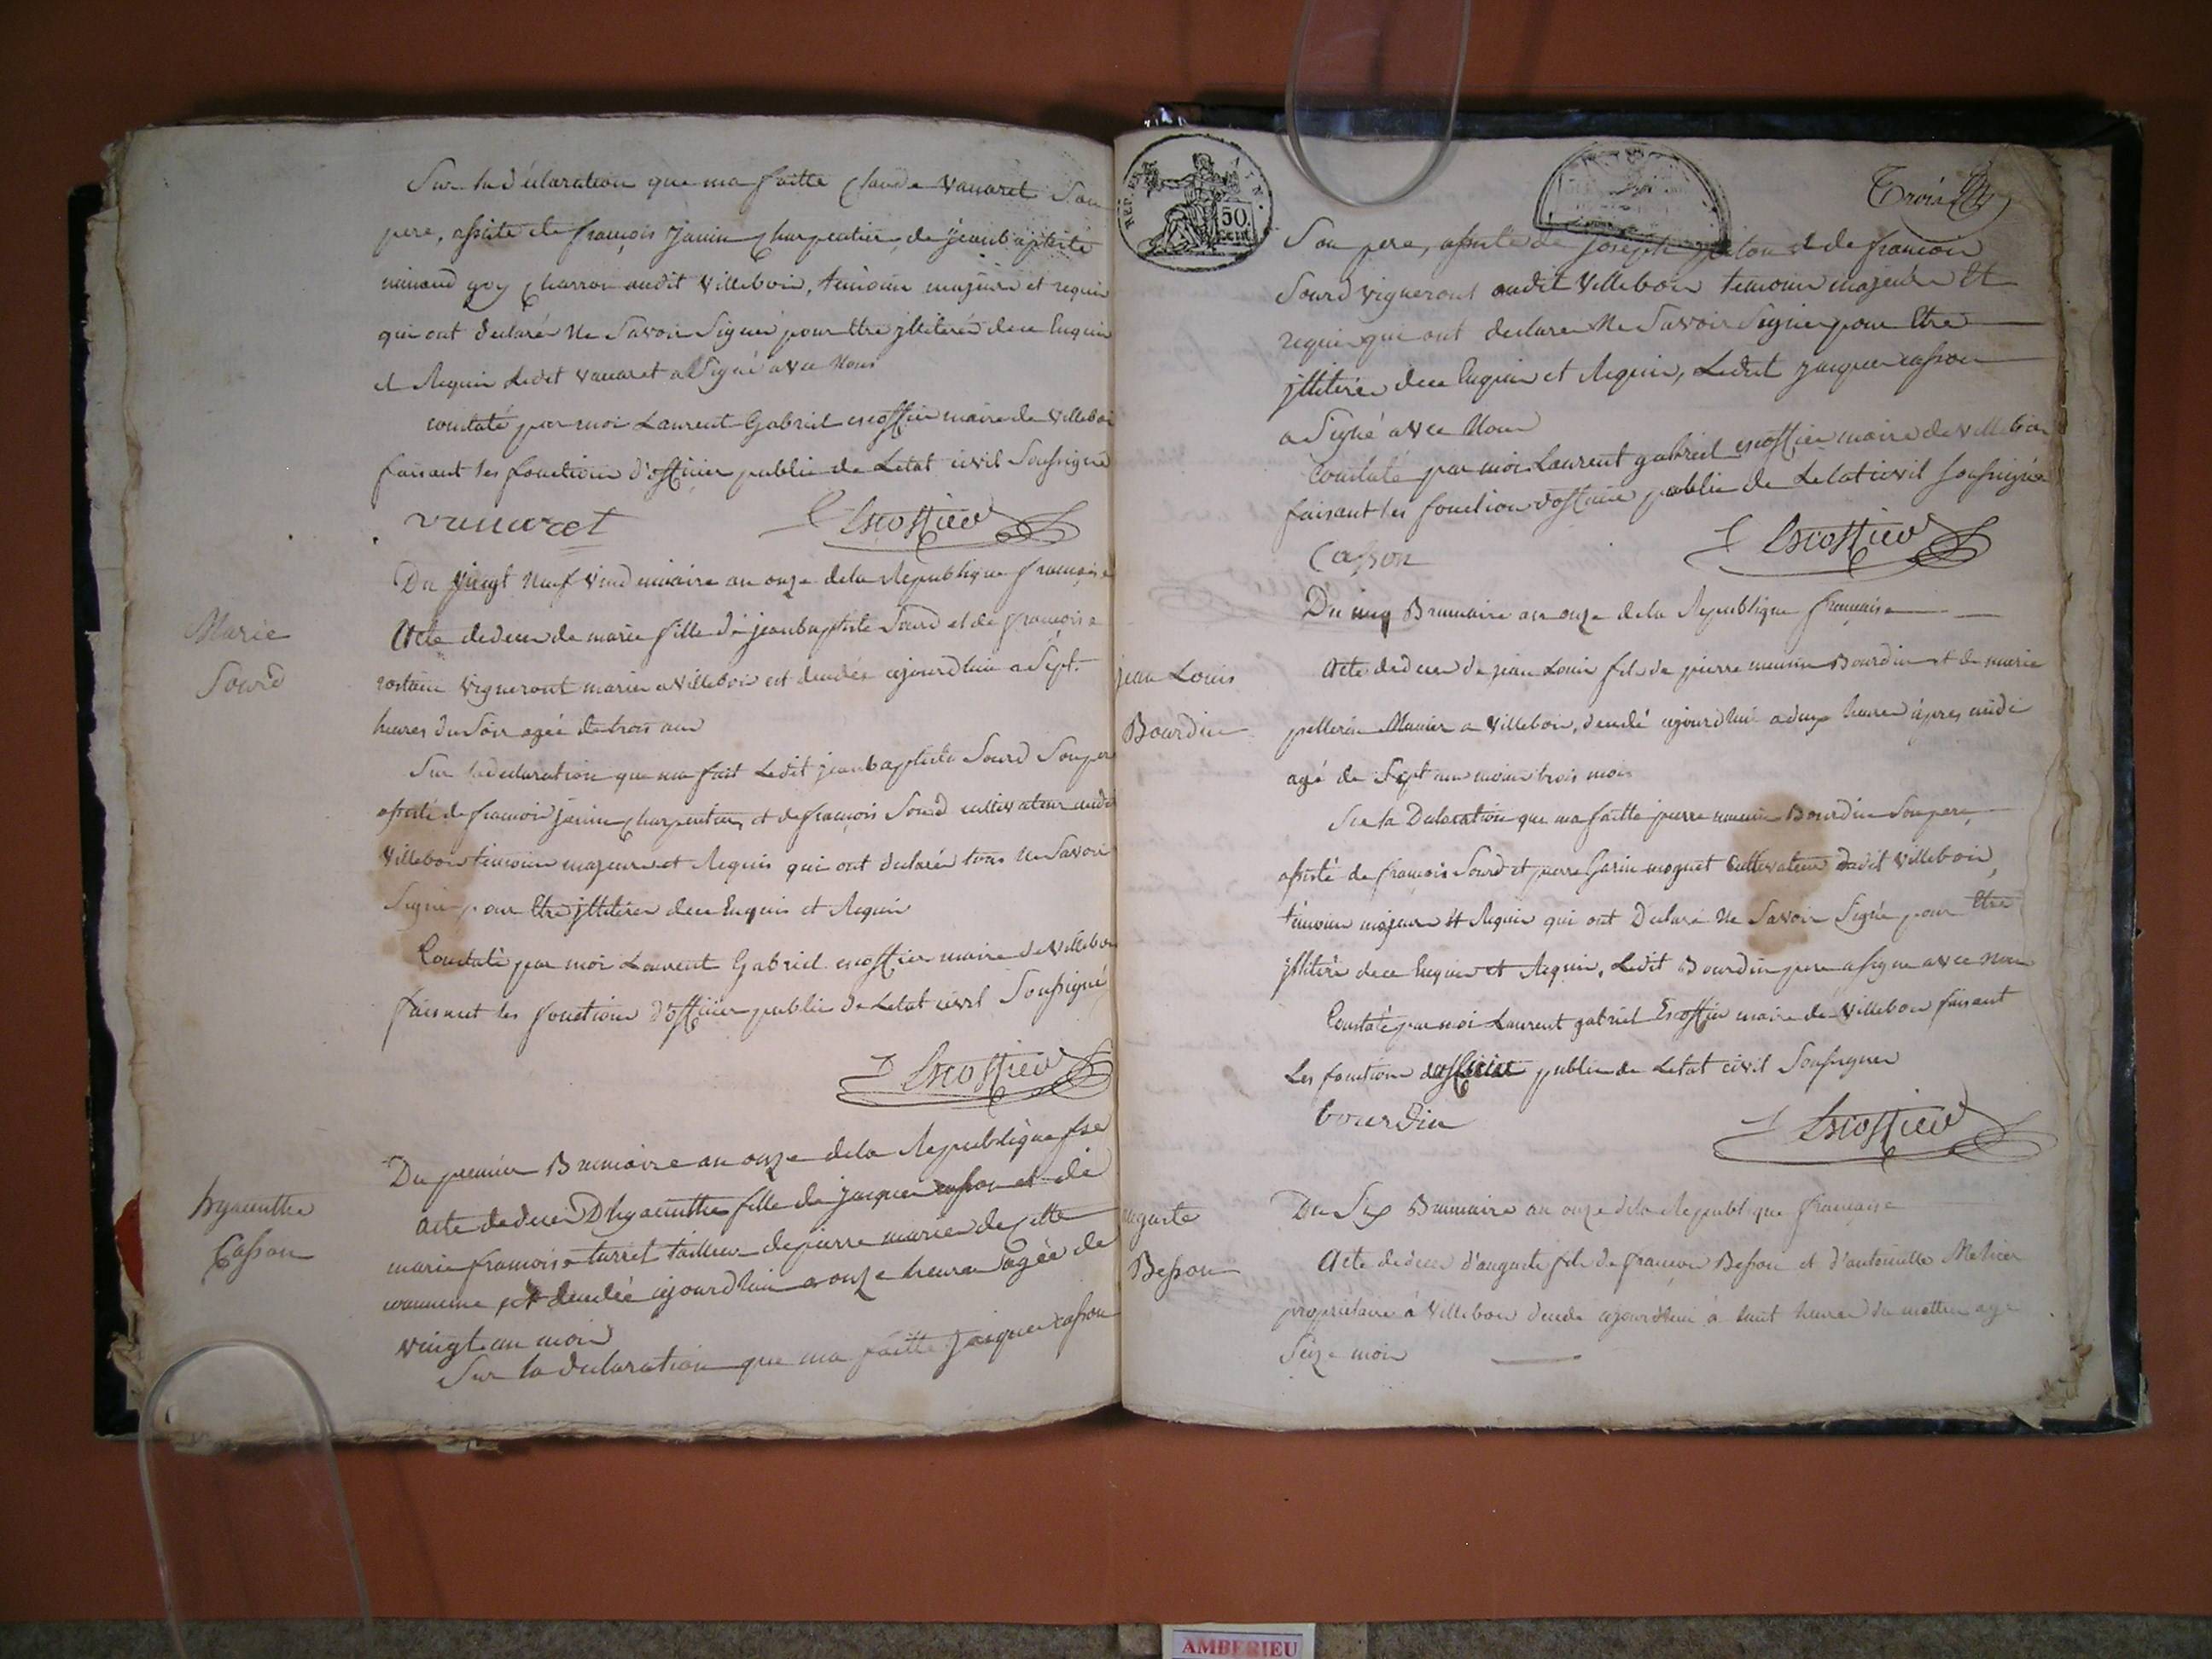 Sur la déclaration que ma faitte Claude vanaret Son
pere, assisté de françois Janin Charpentier, de jeanbaptiste
minand guy Charron audit Villebois, témoins majeurs et requis
qui ont déclaré ne Savoir Signer pour Etre jlliterés dece Enquis
et Requis Ledit vanaret a Signé avec Nous
constaté par moi Laurent Gabriel escoffier maire de Villebois
faisant les fonctions d'officier public de Letat civil Soussigné
vanaret L Escoffier
Du Vingt Neuf Vendemiaire an onze dela Republique françaisse
Marie
Sourd
Acte dedeces de marie fille de jeanbaptiste Sourd et de françoise
rostain Vigneront mariés a Villebois est decedée ajourdhuis a Sept
heures du Soir ageé de trois ans
Sur la declaration que ma fait Ledit jeanbaptiste Sourd Son pere
assisté de francois janin Charpentier, et de françois Sourd cultivateur audit
Villebois temoins majeurs et Requis qui ont declarés tous ne Savoir
Signer pour Etre jlliteres dece Enquis et Requis
Constaté par moi Laurent Gabriel escoffier maire de Villebois
faisant les fonctions d'officier public de Letat civil Soussigné
L Escoffier
Du premier Brumaire an onze dela Republique fse
hyacinthe
Casson
acte dedeces D'hyacinthe fille de jacques casson et de
marie francoise turret tailleur depierre mariés de Cette
commune est decedée ajourdhuis a onze heures agée de
vingt un mois
Sur la declaration que ma faitte jacques casson
REP. FRA.
50.
CENT.
Trois
Son pere, assisté de joseph et de francois
Sourd vigneront audit Villebois temoins majeurs Et
requis qui ont declare Ne Savoir Signer pour Etre
jlliterés dece Enquis et Requis, Ledit jacques casson
a Signé avec Nous
Constaté par moi Laurent gabriel escoffier maire de villebois
faisant les fonctions d'officier public de Letat civil soussigné
Casson L Escoffier
Du cinq Brumaire an onze de la Republique française
jean Louis
Bourdin
Acte dedeces de jean Louis fils de pierre Bourdin et de marie
pellerin Mariés a Villebois, decedé ajourdhui a deux heures apres midi
agé de Sept ans moins trois mois
Sur la Declaration que ma faitte pierre Bourdin Son pere,
assisté de françois Sourd et pierre Garin moquet Cultivateurs dudit Villebois,
témoins majeurs et Requis qui ont Declaré Ne Savoir Signer pour Etre
jlliteré dece Enquis et Requis, Ledit Bourdin pere a signe avec nous
Constaté par moi Laurent gabriel Escoffier maire de Villebois faisant
Les fonctions d'officier public de Letat civil Soussigner
bourdin L Escoffier
Du Six Brumaire an onze dela Republique française
auguste
Besson
Acte dedeces d'auguste fils de françois Besson et d'antoinette
propriétaire à Villebois decede ajourdhui à huit heures du mattin age
Seize mois
AMBERIEU